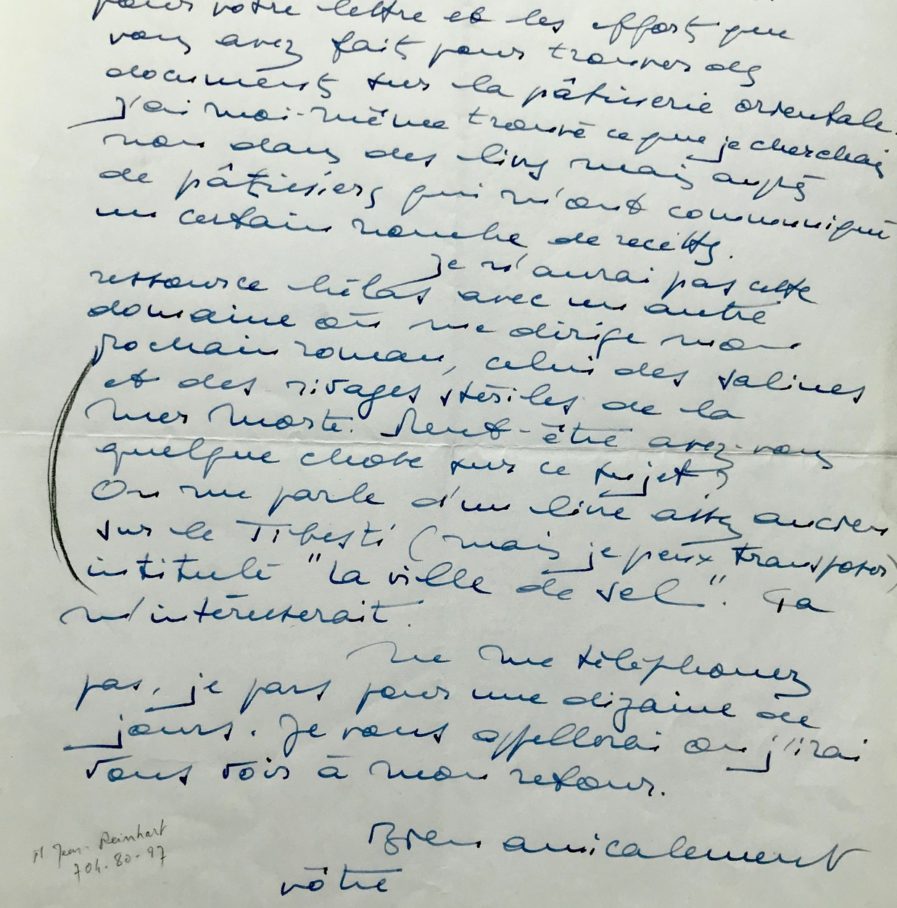 pour votre lettre et les efforts que
vous avez fait pour trouver des
documents sur la pâtisserie orientale.
J'ai moi-même trouvé ce que je cherchais
non dans des livres mais auprès
de pâtissiers qui m'ont communiqué
un certain nombre de recettes.
Je n'aurai pas cette
ressource hélas avec un autre
domaine où me dirige mon
prochain roman, celui des salines
et des rivages stériles de la
mer morte. Peut-être avez-vous
quelque chose sur ce sujet ?
On me parle d'un livre assez ancien
sur le Tibesti (mais je peux transposer)
intitulé "la ville de sel". Ça
m'intéresserait.
Ne me téléphonez
pas, je pars pour une dizaine de
jours. Je vous appellerai ou j'irai
vous voir à mon retour.
Bien amicalement
vôtre
M Jean Reinhart
704-80-97